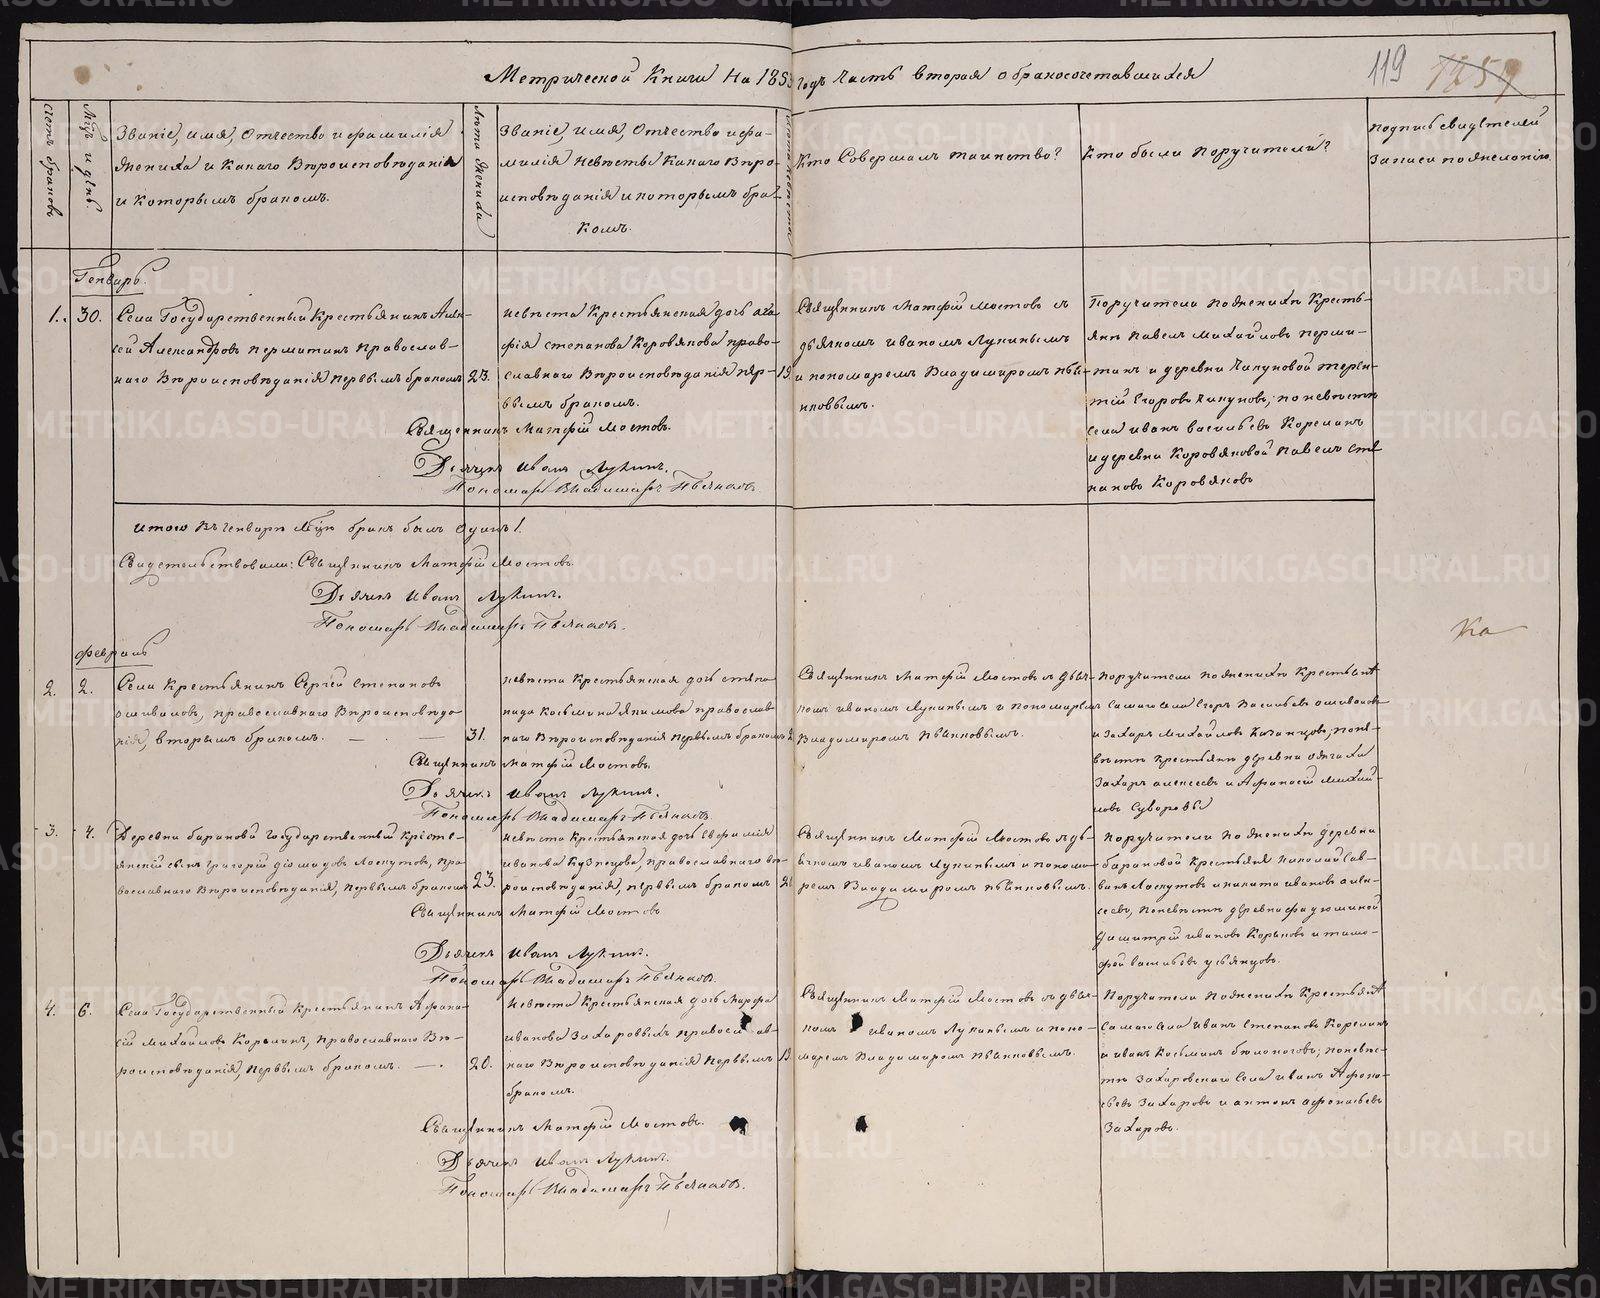 Метрической Книги На 185 годъ Часть вторая о бракосочетавшихся
119
Счетъ браковъ
Мѣсяцъ и день
Званіе, имя, Отчество и фамилія
Жениха и Какаго Вѣроисповѣданія
и Которымъ бракомъ.
Лѣта Жениха
Званіе, имя, Отчество и фа-
милія Невѣсты Какаго Вѣро
исповѣданія и которымъ бра-
комъ.
Кто Совершалъ таинство?
Кто были Поручители?
Подпись свидѣтелей
Записи по желанію.
Генварь.
1. 30.
Села Государственный Крестьянинъ Алек-
сѣй Александровъ Пермитинъ Православ-
наго Вѣроисповѣданія первымъ бракомъ 23.
невѣста Крестьянская дочь Ага
фія степанова Коровякова право-
славнаго Вѣроисповѣданія пер- 19
вымъ бракомъ.
Священникъ Матфій Мостовъ съ
дьячкомъ иваномъ Лукинымъ
и пономаремъ Владимиромъ пья-
нковымъ.
Поручители по женихѣ Кресть-
яне Павелъ Михайловъ перми-
тинъ и деревни Чикуновой терен-
тій Егоровъ Чикуновъ; по невѣстѣ
села иванъ васильевъ Корелинъ
и деревни Коровяковой павелъ сте
пановъ Коровяковъ
Священникъ Матфій Мостовъ.
Дьячекъ Иванъ Лукинъ.
Пономарь Владимиръ Пьянковъ.
итого въ Генварѣ Мцѣ бракъ былъ Одинъ 1.
Свидетельствовали: Священникъ Матфій Мостовъ.
Дьячекъ Иванъ Лукинъ.
Пономарь Владимиръ Пьянковъ.
февраль
2. 2.
Села Крестьянинъ Сергѣй степановъ
ошиваловъ, православнаго Вѣроисповѣда-
нія, вторымъ бракомъ. 31.
невѣста Крестьянская дочь степа
нида Косьмина Якимова православ-
наго Вѣроисповѣданія первымъ бракомъ 2
Священникъ Матфій Мостовъ съ дьяч-
комъ иваномъ Лукинымъ и пономаремъ
Владимиромъ Пьянковымъ.
поручители по женихѣ Крестьяне
самаго села Егоръ Васильевъ ошиваловъ
и Захаръ Михайловъ Казанцовъ; по не-
вѣстѣ крестьяне деревни
Захаръ алексеевъ и Афанасій Михай
ловъ Суворовы
Священникъ Матфій Мостовъ.
Дьячекъ Иванъ Лукинъ.
Пономарь Владимиръ Пьянковъ.
Ка
3. 4.
Деревни бараковой государственный кресть-
янскій сынъ григорій діомидовъ Лоскутовъ, пра-
вославнаго Вѣроисповѣданія, первымъ бракомъ 23.
невѣста крестьянская дочь Евфимія
иванова Кузнецова, православнаго вѣ-
роисповѣданія, первымъ бракомъ 21
Священникъ Матфій Мостовъ съ дь-
ячкомъ иваномъ Лукинымъ и понома-
ремъ Владимиромъ пьянковымъ.
поручители по женихѣ деревни
бараковой крестьяне николай Сав-
винъ Лоскутовъ и никита ивановъ алек-
сеевъ, по невѣстѣ деревни фадюшиной
Димитрій ивановъ Корьковъ и тимо-
фей васильевъ убьянцовъ.
Священникъ Матфій Мостовъ
Дьячекъ Иванъ Лукинъ.
Пономарь Владимиръ Пьянковъ.
4. 6.
Села Государственный крестьянинъ Афана-
сій михайловъ Корелинъ, православнаго Вѣ-
роисповѣданія, первымъ бракомъ. 20.
невѣста крестьянская дочь Марфа
иванова Захаровыхъ православ-
наго Вѣроисповѣданія первымъ 19
бракомъ.
Священникъ Матфій Мостовъ съ дьяч-
комъ иваномъ Лукинымъ и поно-
маремъ Владимиромъ пьянковымъ.
Поручители по женихѣ крестьяне
самаго села иванъ степановъ Корелинъ
и иванъ Косьминъ бѣлоноговъ; по невѣс-
тѣ Захаровскаго села иванъ Афона-
сьевъ Захаровъ и антонъ афонасьевъ
Захаровъ.
Священникъ Матфій Мостовъ.
Дьячекъ Иванъ Лукинъ.
Пономарь Владимиръ Пьянковъ.
METRIKI.GASO-URAL.RU